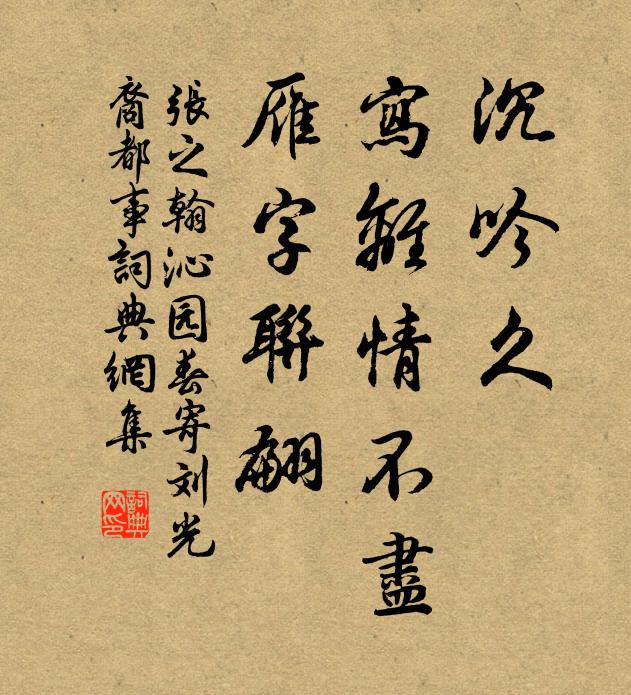 沉吟久
寫離情不盡
雁字聯翩
張之翰沁园春寄刘光
裔都事詞典網集
詞典網印